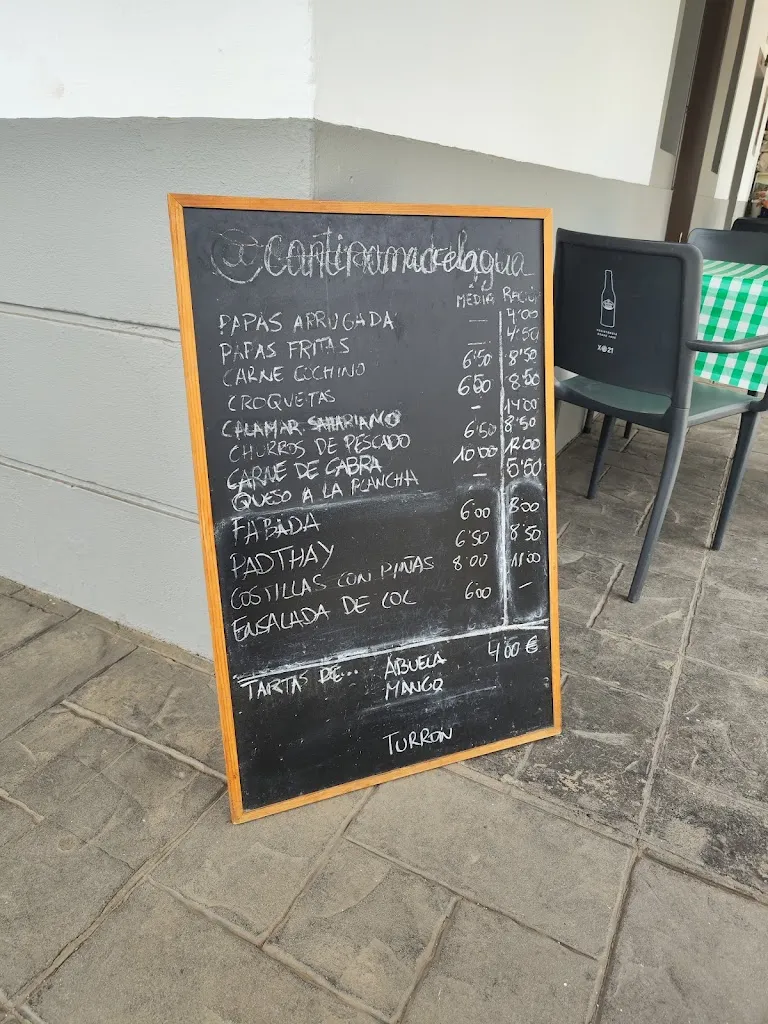 @cantinamadrelagua
MEDIA RACIÓN
PAPAS ARRUGADA — 4'00
PAPAS FRITAS — 4'50
CARNE COCHINO 6'50 8'50
CROQUETAS 6'50 8'50
CALAMAR SAHARIANO — 14'00
CHURROS DE PESCADO 6'50 8'50
CARNE DE CABRA 10'00 12'00
QUESO A LA PLANCHA — 5'50
FABADA 6'00 8'00
PADTHAY 6'50 8'50
COSTILLAS CON PIÑAS 8'00 11'00
ENSALADA DE COL 6'00 —
TARTAS DE... ABUELA 4'00 €
MANGO
TURRON